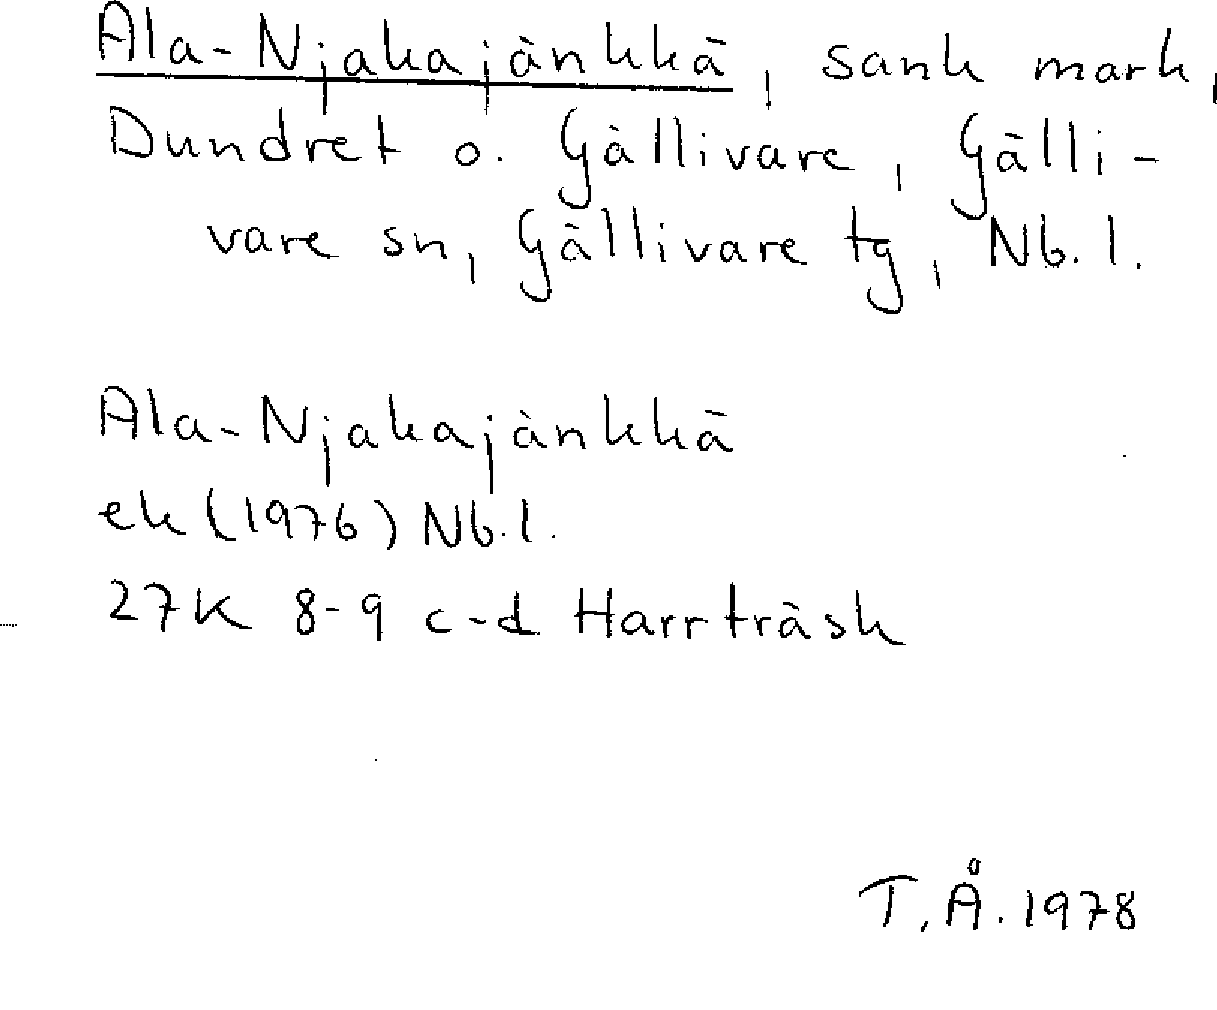 Ala-Njakajänkkä, sank mark,
Dundret o. Gällivare, Gälli-
vare sn, Gällivare tg, Nb. l.
Ala-Njakajänkkä
ek (1976) Nb. l.
27K 8-9 c-d Harrträsk
T. Å. 1978